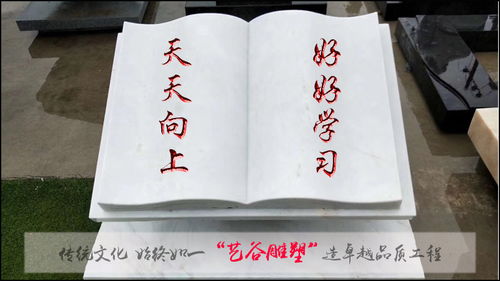 好好学习
天天向上
传统文化 始终如一 “艺谷雕塑” 造卓越品质工程